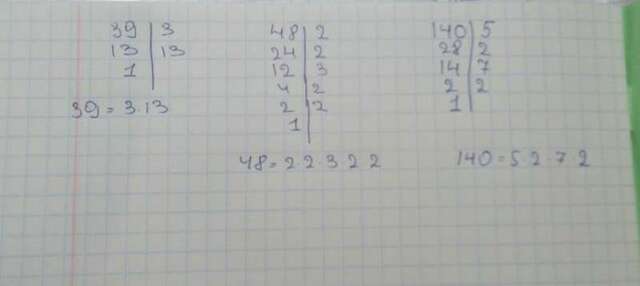 39 | 3
13 | 13
1 |
39 = 3·13
48 | 2
24 | 2
12 | 3
4 | 2
2 | 2
1 |
48 = 2·2·3·2·2
140 | 5
28 | 2
14 | 7
2 | 2
1 |
140 = 5·2·7·2